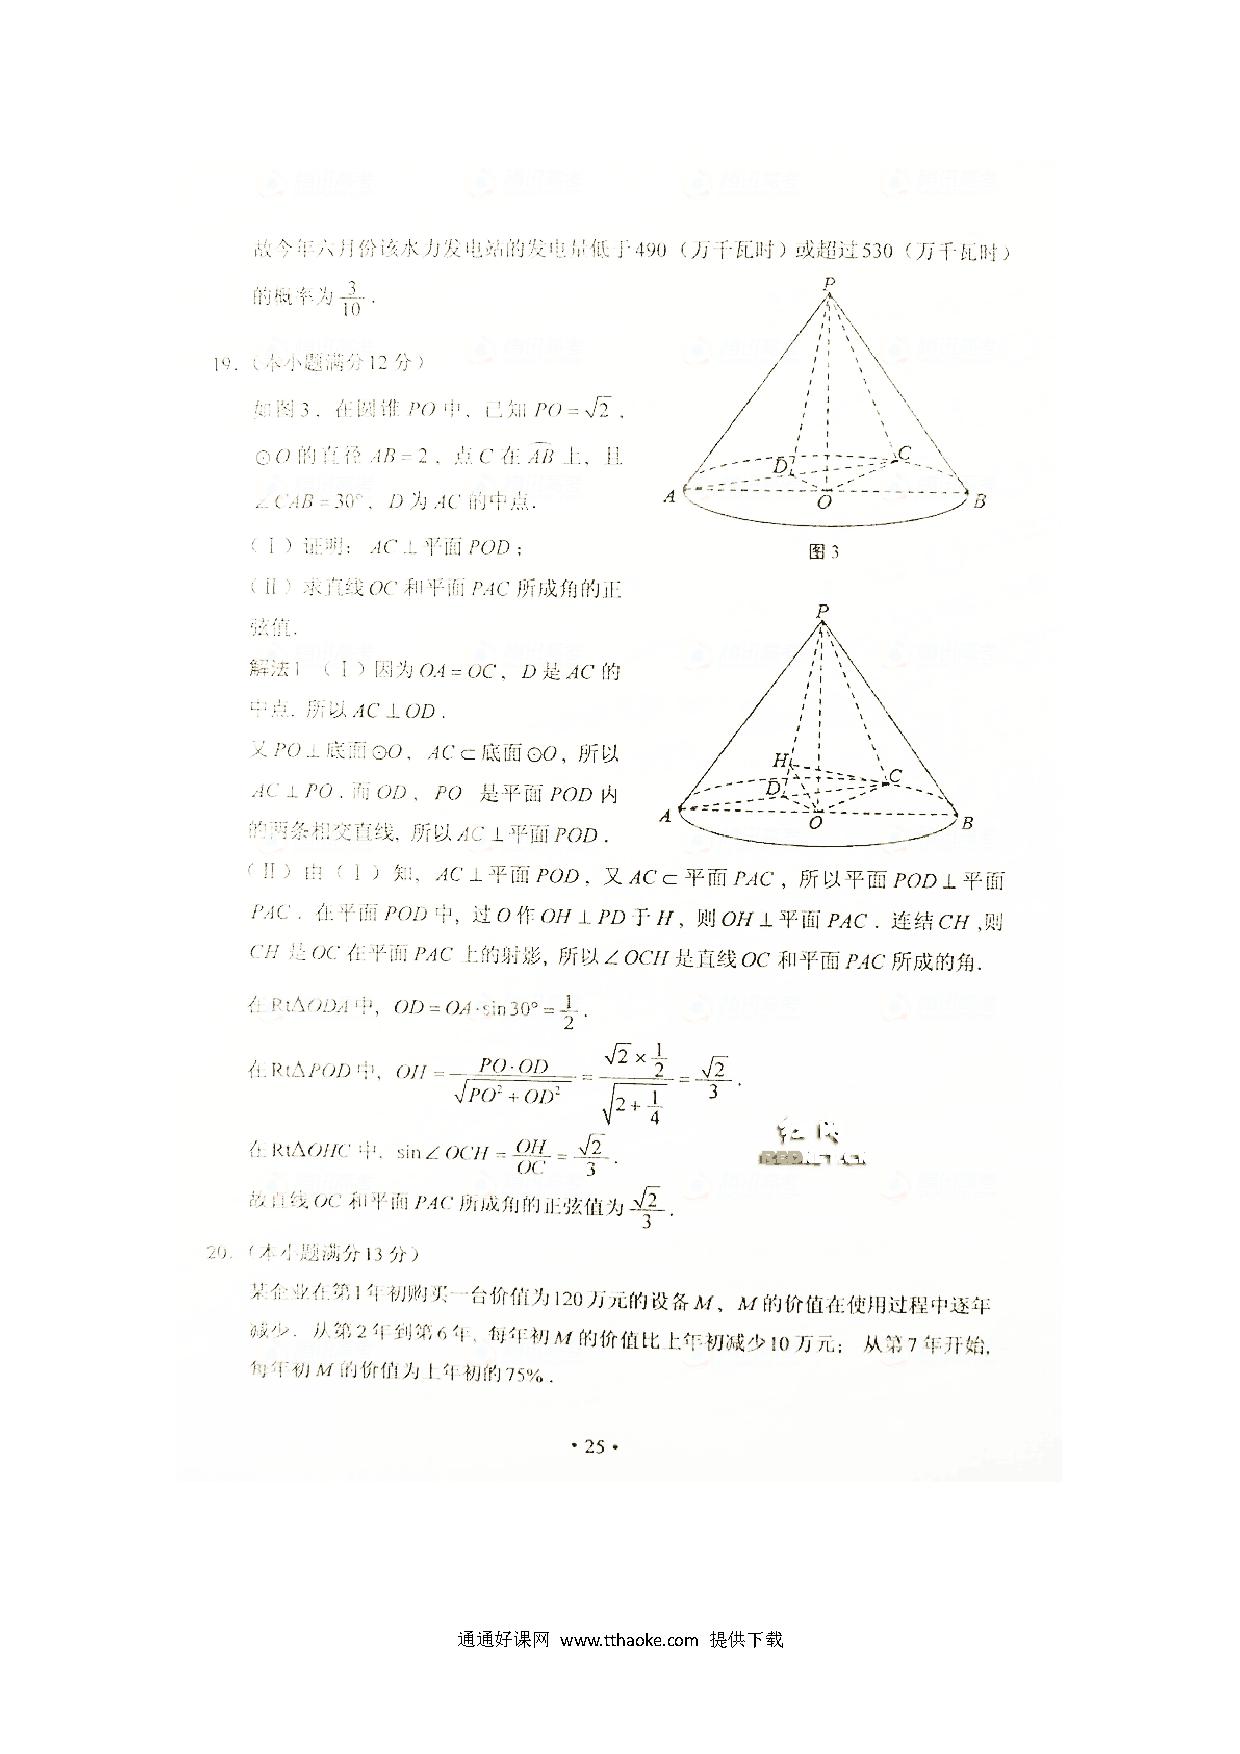 故今年六月份该水力发电站的发电量低于490（万千瓦时）或超过530（万千瓦时）
的概率为 3/10 .
19.（本小题满分12分）
如图3，在圆锥 PO 中，已知 PO=√2，
⊙O 的直径 AB=2，点 C 在 AB 上，且
∠CAB=30°，D 为 AC 的中点.
（Ⅰ）证明：AC⊥平面 POD；
（Ⅱ）求直线 OC 和平面 PAC 所成角的正
弦值.
P
D
C
A
O
B
图3
解法1（Ⅰ）因为 OA=OC，D 是 AC 的
中点，所以 AC⊥OD.
又 PO⊥底面⊙O，AC⊂底面⊙O，所以
AC⊥PO. 而 OD，PO 是平面 POD 内
的两条相交直线，所以 AC⊥平面 POD.
P
H
D
C
A
O
B
（Ⅱ）由（Ⅰ）知，AC⊥平面 POD，又 AC⊂平面 PAC，所以平面 POD⊥平面
PAC. 在平面 POD 中，过 O 作 OH⊥PD 于 H，则 OH⊥平面 PAC. 连结 CH,则
CH 是 OC 在平面 PAC 上的射影，所以∠OCH 是直线 OC 和平面 PAC 所成的角.
在Rt△ODA中，OD=OA·sin30°=1/2.
在Rt△POD中，OH=PO·OD/√(PO²+OD²)=(√2×1/2)/√(2+1/4)=√2/3.
在Rt△OHC中，sin∠OCH=OH/OC=√2/3.
故直线 OC 和平面 PAC 所成角的正弦值为 √2/3.
20.（本小题满分13分）
某企业在第1年初购买一台价值为120万元的设备 M，M 的价值在使用过程中逐年
减少. 从第2年到第6年，每年初 M 的价值比上年初减少10万元；从第7年开始，
每年初 M 的价值为上年初的75%.
·25·
通通好课网 www.tthaoke.com 提供下载